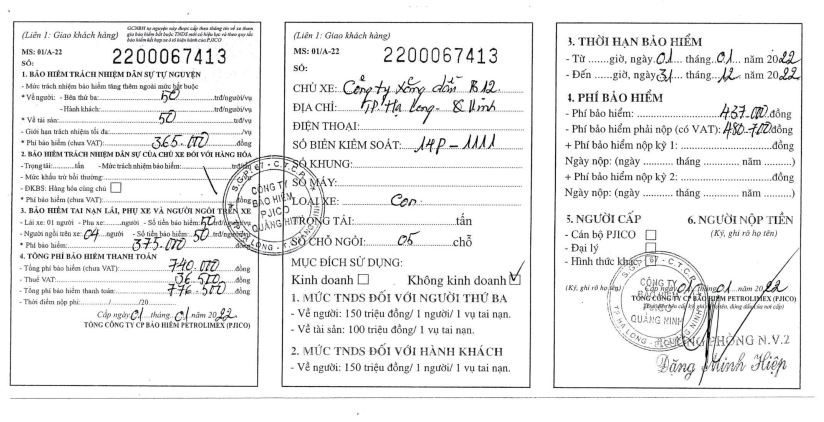 (Liên 1: Giao khách hàng)
GCNBH tự nguyện này được cấp theo thông tin về xe tham
gia bảo hiểm bắt buộc TNDS mới có hiệu lực và theo quy tắc
bảo hiểm kết hợp xe ô tô hiện hành của PJICO
MS: 01/A-22
SỐ:
2200067413
1. BẢO HIỂM TRÁCH NHIỆM DÂN SỰ TỰ NGUYỆN
- Mức trách nhiệm bảo hiểm tăng thêm ngoài mức bắt buộc
* Về người: - Bên thứ ba: 50 trđ/người/vụ
- Hành khách: trđ/người/vụ
* Về tài sản: 50 trđ/vụ
- Giới hạn trách nhiệm tối đa: trđ/vụ
* Phí bảo hiểm (chưa VAT): 365.000 đồng
2. BẢO HIỂM TRÁCH NHIỆM DÂN SỰ CỦA CHỦ XE ĐỐI VỚI HÀNG HÓA
- Trọng tải: tấn - Mức trách nhiệm bảo hiểm:
- Mức khấu trừ bồi thường:
- ĐKBS: Hàng hóa cùng chủ
* Phí bảo hiểm (chưa VAT):
3. BẢO HIỂM TAI NẠN LÁI, PHỤ XE VÀ NGƯỜI NGỒI TRÊN XE
- Lái xe: 01 người - Phụ xe: người - Số tiền bảo hiểm: 50 trđ/người/vụ
- Người ngồi trên xe: 04 người - Số tiền bảo hiểm: 50 trđ/người/vụ
* Phí bảo hiểm: 375.000 đồng
4. TỔNG PHÍ BẢO HIỂM THANH TOÁN
- Tổng phí bảo hiểm (chưa VAT): 740.000 đồng
- Thuế VAT: 36.500 đồng
- Tổng phí bảo hiểm thanh toán: 776.500 đồng
- Thời điểm nộp phí: / /20
Cấp ngày 01 tháng 01 năm 2022
TỔNG CÔNG TY CP BẢO HIỂM PETROLIMEX (PJICO)
(Liên 1: Giao khách hàng)
MS: 01/A-22
SỐ:
2200067413
CHỦ XE: Công ty Xăng dầu B12
ĐỊA CHỈ: TP. Hạ Long - Q Ninh
ĐIỆN THOẠI:
SỐ BIỂN KIỂM SOÁT: 14P - 1111
SỐ KHUNG:
SỐ MÁY:
LOẠI XE: Con
TRỌNG TẢI: tấn
SỐ CHỖ NGỒI: 05 chỗ
MỤC ĐÍCH SỬ DỤNG:
Kinh doanh Không kinh doanh
1. MỨC TNDS ĐỐI VỚI NGƯỜI THỨ BA
- Về người: 150 triệu đồng/ 1 người/ 1 vụ tai nạn.
- Về tài sản: 100 triệu đồng/ 1 vụ tai nạn.
2. MỨC TNDS ĐỐI VỚI HÀNH KHÁCH
- Về người: 150 triệu đồng/ 1 người/ 1 vụ tai nạn.
CÔNG TY
BẢO HIỂM
PJICO
QUẢNG NINH
3. THỜI HẠN BẢO HIỂM
- Từ ......giờ, ngày 01 tháng 01 năm 2022
- Đến ......giờ, ngày 31 tháng 12 năm 2022
4. PHÍ BẢO HIỂM
- Phí bảo hiểm: 437.000 đồng
- Phí bảo hiểm phải nộp (có VAT): 480.700 đồng
+ Phí bảo hiểm nộp kỳ 1: đồng
Ngày nộp: (ngày ........ tháng ........ năm ........)
+ Phí bảo hiểm nộp kỳ 2: đồng
Ngày nộp: (ngày ........ tháng ........ năm ........)
5. NGƯỜI CẤP
6. NGƯỜI NỘP TIỀN
- Cán bộ PJICO
(Ký, ghi rõ họ tên)
- Đại lý
- Hình thức khác
(Ký, ghi rõ họ tên)
Cấp ngày 01 tháng 01 năm 2022
TỔNG CÔNG TY CP BẢO HIỂM PETROLIMEX (PJICO)
CÔNG TY
PJICO
QUẢNG NINH
PHÒNG N.V.2
Đặng Minh Hiệp